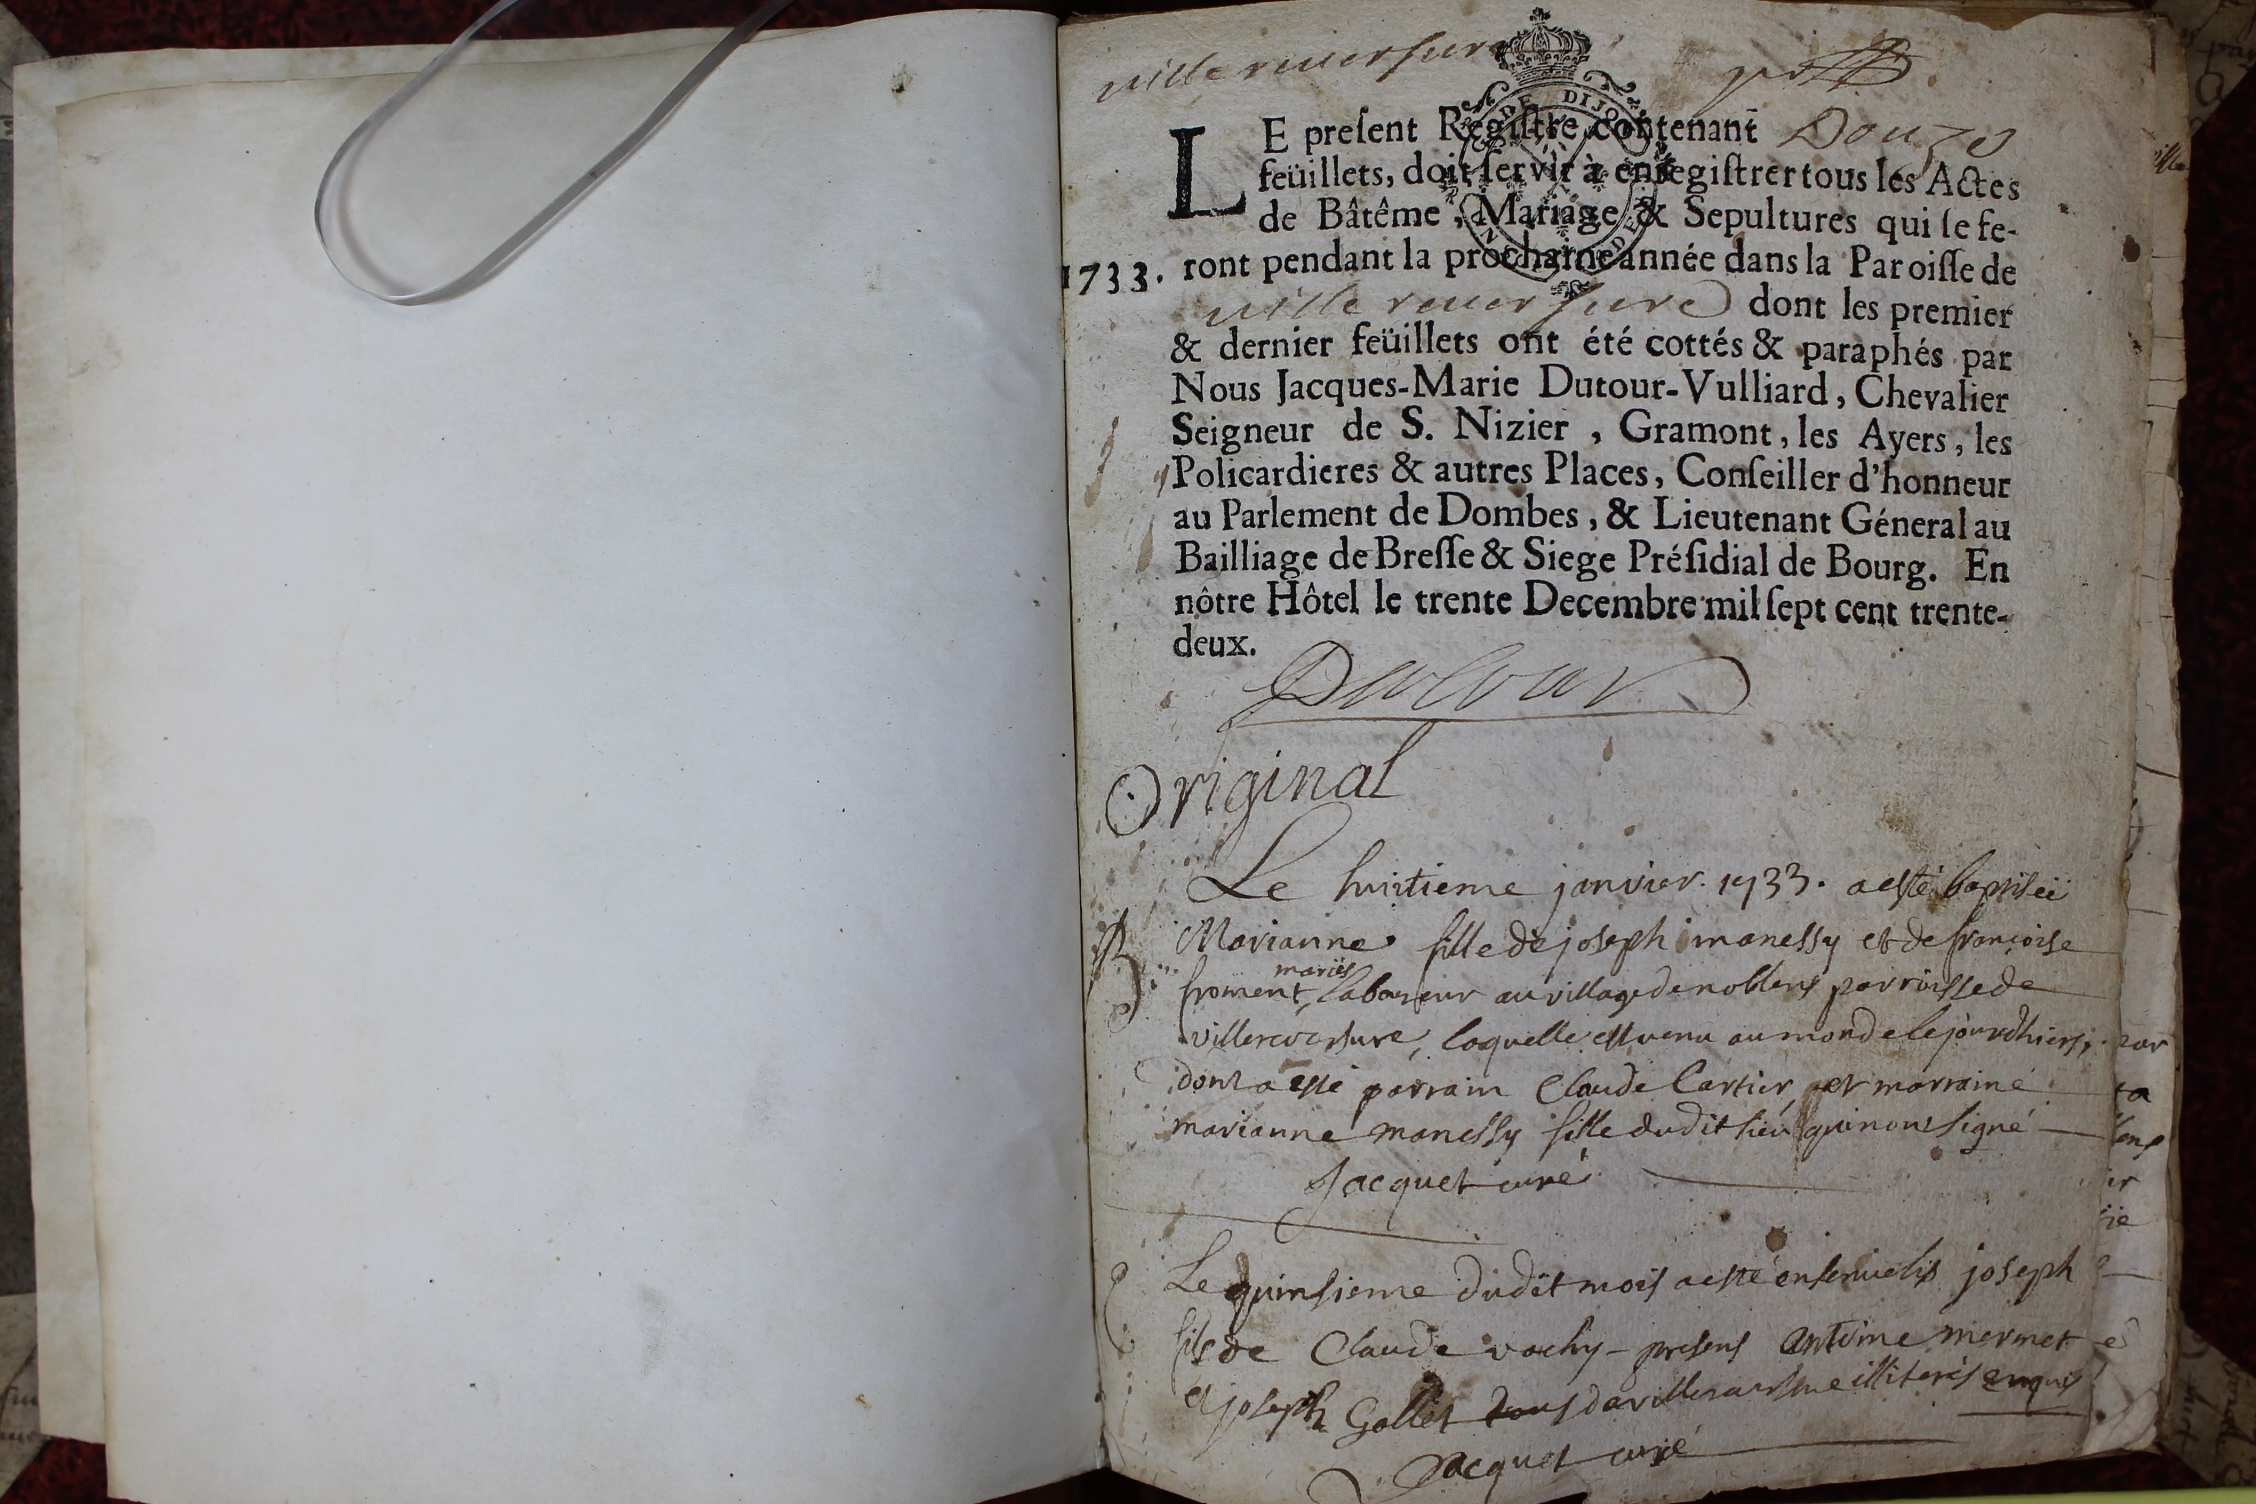 villereversure
LE preſent Regiſtre contenant Douze
feüillets, doit ſervir à enregiſtrer tous les Actes
de Bâtême, Mariage & Sepultures qui ſe fe-
1733. ront pendant la prochaine année dans la Paroiſſe de
villereversure dont les premier
& dernier feüillets ont été cottés & paraphés par
Nous Jacques-Marie Dutour-Vulliard, Chevalier
Seigneur de S. Nizier, Gramont, les Ayers, les
Policardieres & autres Places, Conſeiller d'honneur
au Parlement de Dombes, & Lieutenant Géneral au
Bailliage de Breſſe & Siege Préſidial de Bourg. En
nôtre Hôtel le trente Decembre mil ſept cent trente-
deux.
Dutour
Original
Le huitieme janvier. 1733. a esté baptiseé
B Marianne fille de joseph manessy et de françoise
froment, mariés laboureur au village de noblens parroisse de
villereversure, laquelle est venu au monde le jour dhiers,
dont a esté parrain Claude Cartier, et marraine
marianne manessy fille dudit lieu qui nont signé
Jacquet curé
Le quinsieme dudit mois a esté ensevelis joseph
fils de Claude vachy presens antoine mermet
et joseph Gallet tous de villereversure illiterés enquis
Jacquet curé